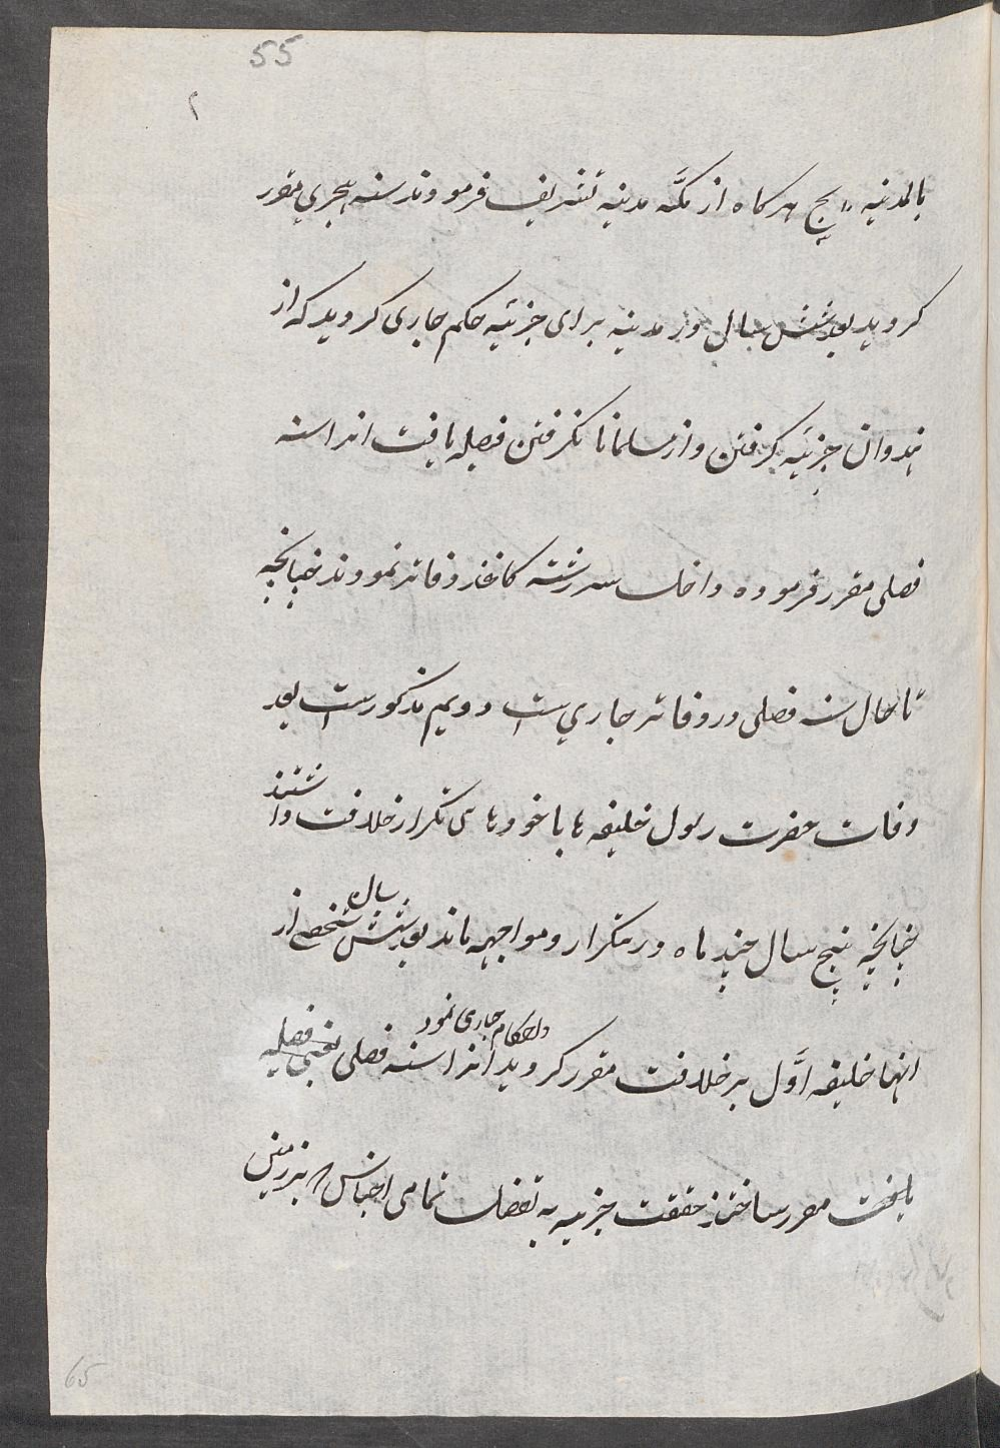 55
۲
بالمدنیه یح هرکاه از مکّه مدینه تشریف فرمودند سنه هجری مقرر
کردید بعد شش سال در مدینه برای جزئیه حکم جاری کردید که از
هندوان جزئیه کرفتن و از مسلمانا نکرفتن فیصله یافت لهذا سنه
فصلی مقرر فرموده داخل سررشته کاغذ دفاتر نمودند چنانچه
تا حال سنه فصلی در دفاتر جاری ست دویم مذکورست بعد
وفات حضرت رسول خلیفه ها با خودهای تکرار خلافت داشتند
چنانچه پنج سال چند ماه در تکرار و مواجهه ماند بعد شش سال شخصی از
انها خلیفه اوّل بر خلافت مقرر کردید و احکام جاری نمود لهذا سنه فصلی یعنی فصلیه
یافت مقرر ساختند حقیقت جزیه به تفصیل تمامی اجناس بر زمین
65